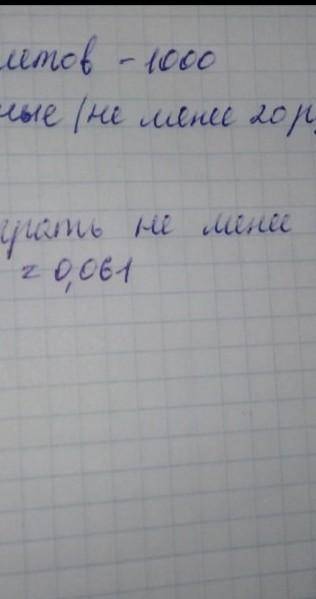 летов - 1000
ные (не менее 20 р
грать не менее
= 0,061